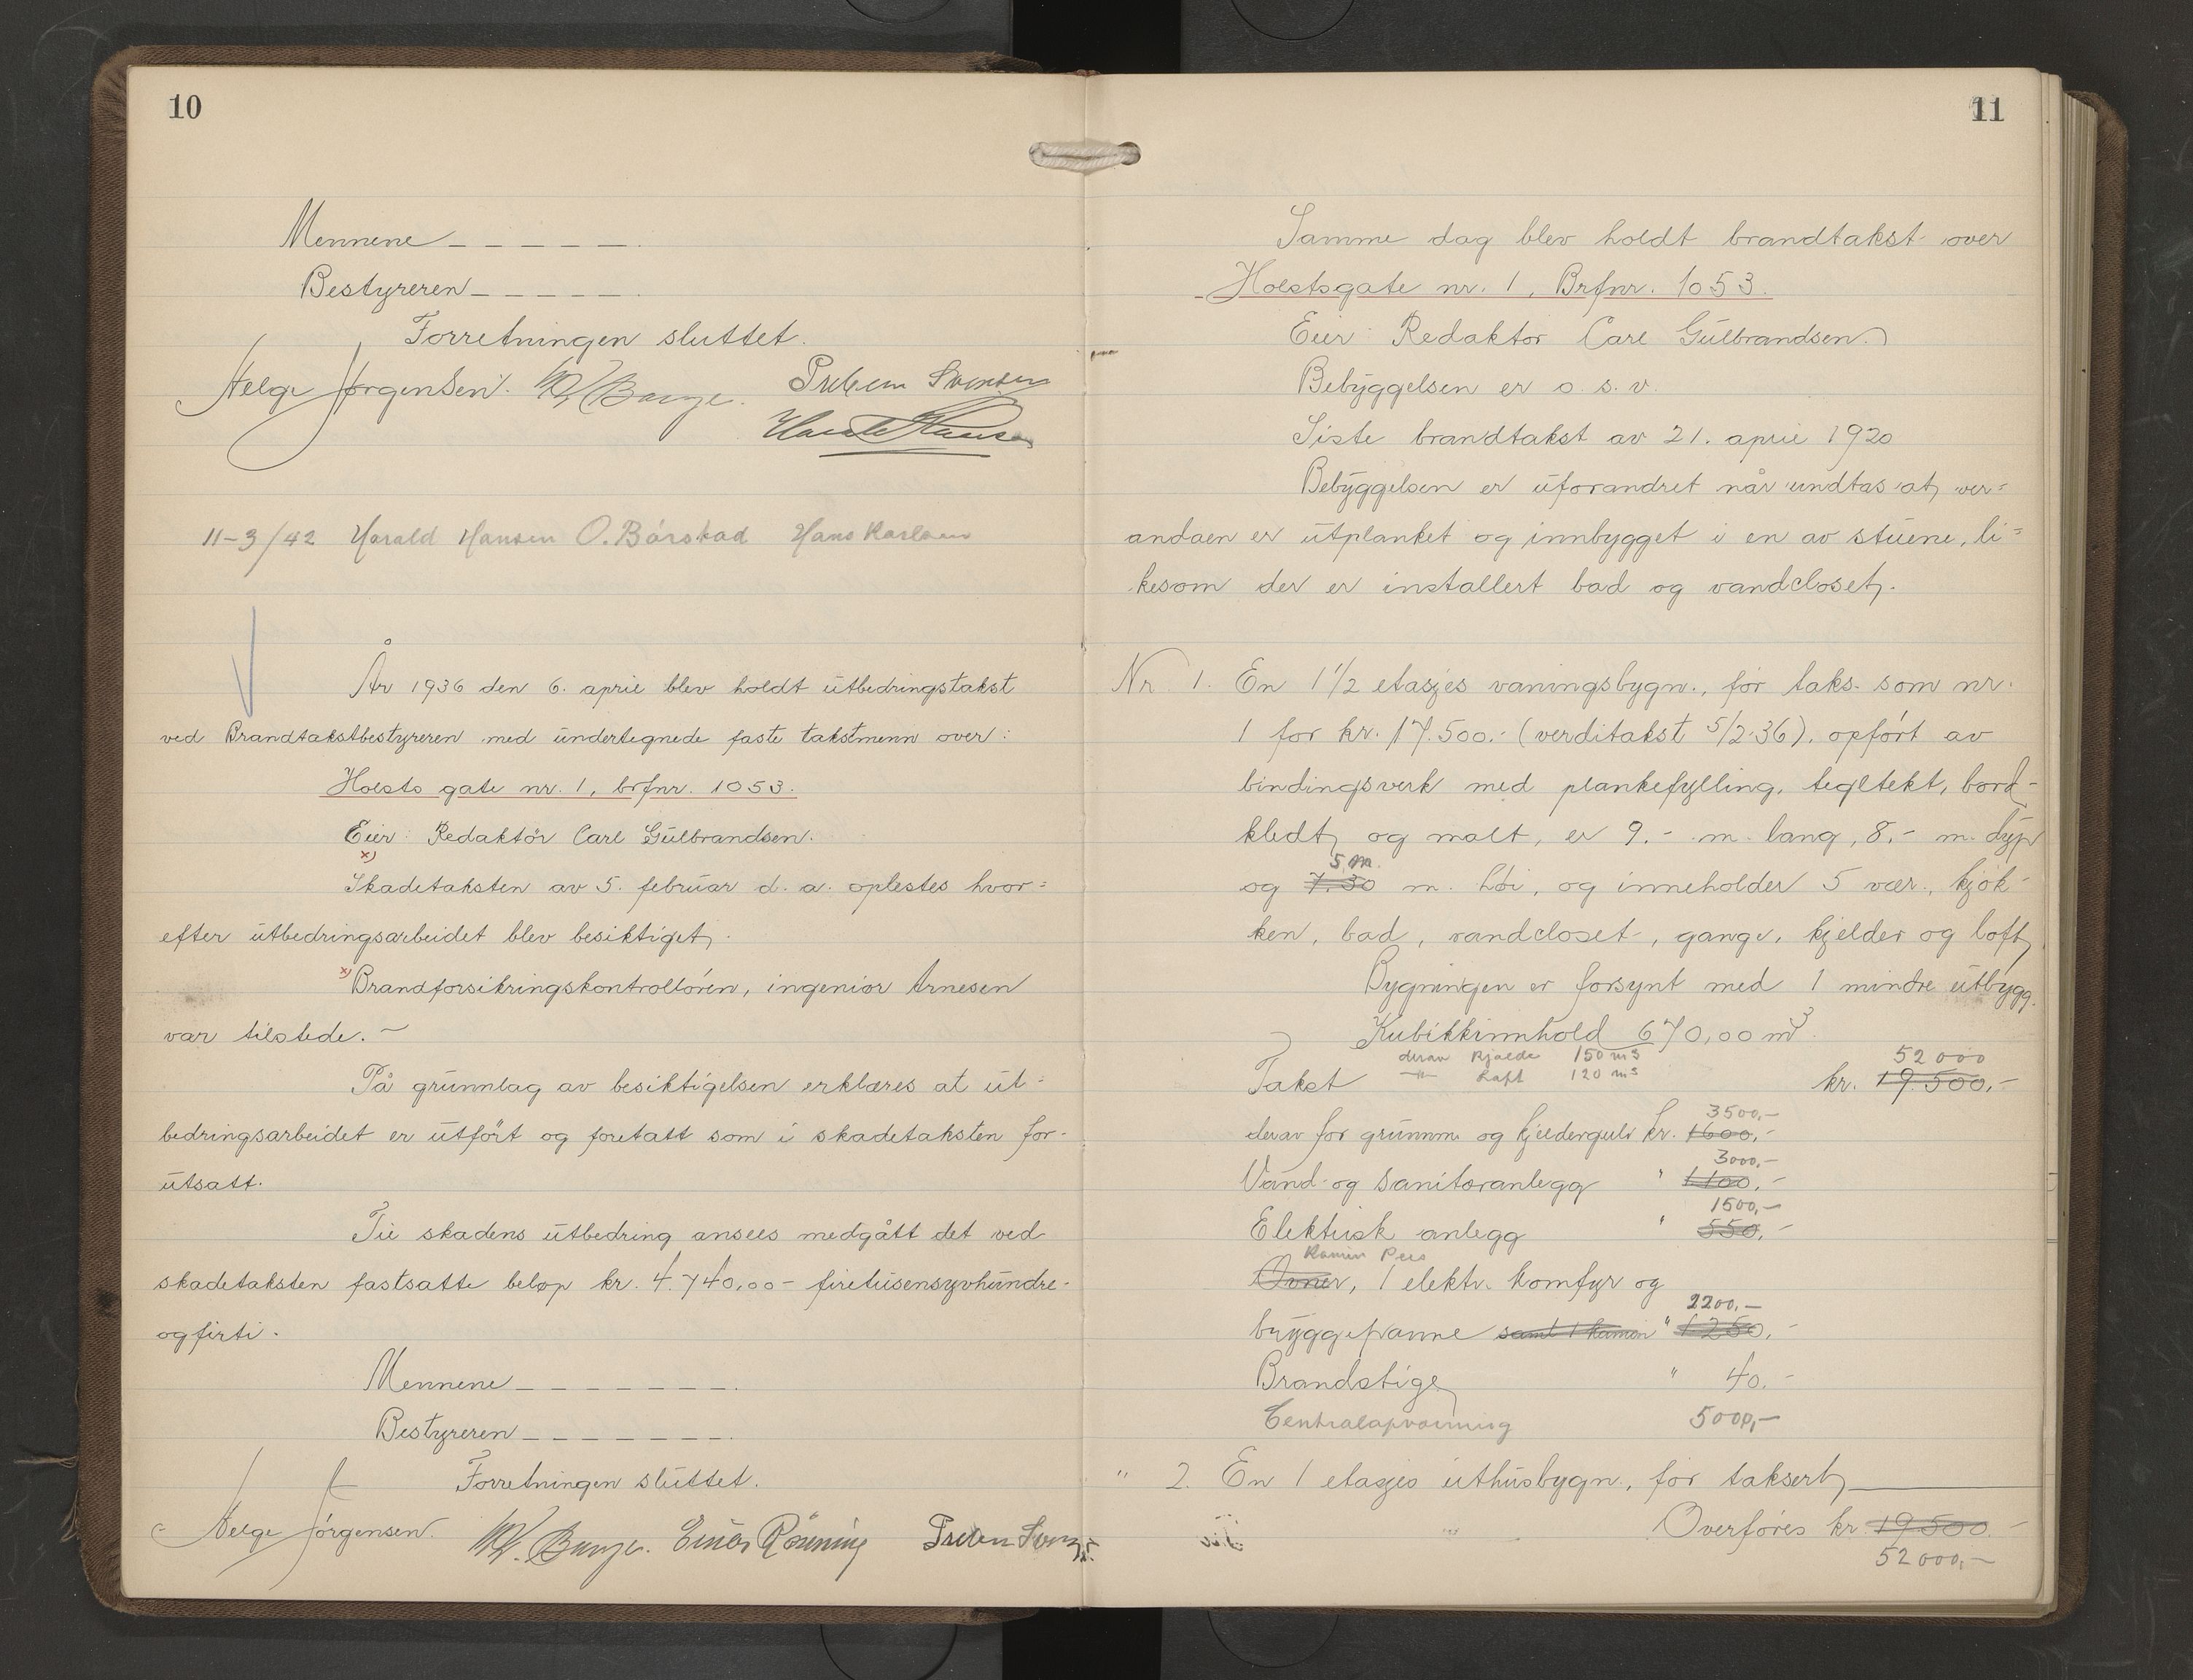 10
Mennene - - - - -
Bestyreren - - - - -
Forretningen sluttet.
Helge Jørgensen. W. Bunge. Preben Svensen
Harald Hansen
11-3/42 Harald Hansen O. Bårstad Hans Karlsen
År 1936 den 6. april blev holdt utbedringstakst
ved Brandtakstbestyreren med undertegnede faste takstmenn over:
Holsts gate nr. 1, brfnr. 1053.
Eier: Redaktör Carl Gulbrandsen.
x)
Skadetaksten av 5. februar d. a. oplestes hvor=
efter utbedringsarbeidet blev besiktiget.
x) Brandforsikringskontrollören, ingeniör Arnesen
var tilstede. -
På grunnlag av besiktigelsen erklæres at ut=
bedringsarbeidet er utfört og foretatt som i skadetaksten for-
utsatt.
Til skadens utbedring ansees medgått det ved
skadetaksten fastsatte beløp kr. 4.740,00 - firetusensyvhundre-
ogfirti.
Mennene - - - - - - -
Bestyreren - - - - - - -
Forretningen sluttet.
Helge Jörgensen. W. Bunge. Einar Rönning Preben Svensen
11
Samme dag blev holdt brandtakst over
Holstsgate nr. 1, Brfnr. 1053.
Eier: Redaktör Carl Gulbrandsen.
Bebyggelsen er o. s. v.
Siste brandtakst av 21. april 1920
Bebyggelsen er uforandret når undtas at ver=
andaen er utplanket og innbygget i en av stuene, li=
kesom der er installert bad og vandcloset.
Nr. 1. En 1 1/2 etasjes våningsbygn., för taks. som nr.
1 for kr. 17.500.- (verditakst 5/2-36), opfört av
bindingsverk med plankefylling, tegltekt, bord-
kledt og malt, er 9.- m. lang, 8.- m. dyp
5 m.
og 7.30 m. höi, og inneholder 5 vær., kjök-
ken, bad, vandcloset, gange, kjelder og loft
Bygningen er forsynt med 1 mindre utbygg.
Kubikkinnhold 670,00 m3
derav Kjelder 150 m3
-"- Loft 120 m3
52 000
Takst kr. 19.500,-
3500,-
derav for grunnm. og kjeldergulv kr. 1600,-
3000,-
Vand- og sanitæranlegg " 1100,-
1500,-
Elektrisk anlegg " 550,-
Kamin Peis
Ovner, 1 elektr. komfyr og
2200,-
bryggepanne samt 1 kamin " 1250,-
Brandstige " 40.-
Centralopvarming 5000,-
" 2. En 1 etasjes uthusbygn., för taksert
Overföres kr. 19500.-
52000,-